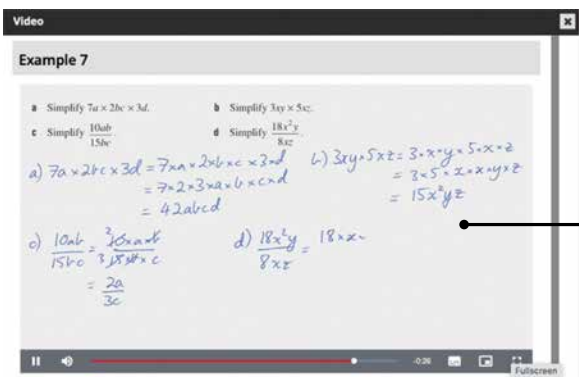 Video
Example 7
a Simplify 7a × 2bc × 3d.
b Simplify 3xy × 5xz.
c Simplify 10ab/15bc.
d Simplify 18x²y/8xz.
a) 7a × 2bc × 3d = 7×a × 2×b×c × 3×d
= 7×2×3×a×b×c×d
= 42abcd
b) 3xy×5xz = 3·x·y×5·x·z
= 3×5×x×x×y×z
= 15x²yz
c) 10ab/15bc = ²10×a×b/₃15×b×c
= 2a/3c
d) 18x²y/8xz = 18×x×
-0:26
Fullscreen